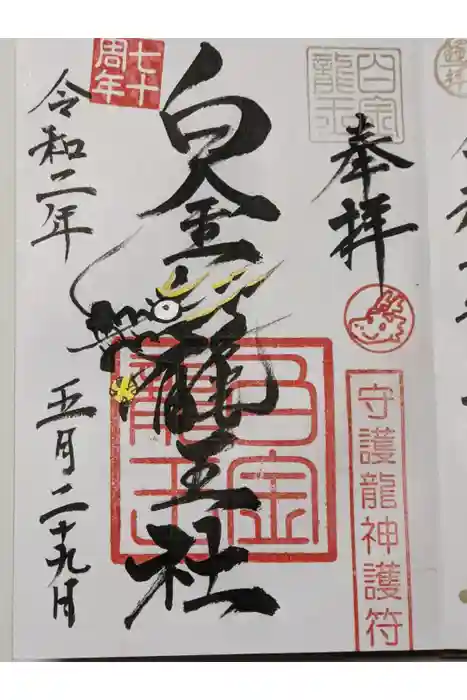 奉拝
白金龍王
守護龍神護符
白金龍王社
白金龍王
七十
周年
令和二年
五月二十九日